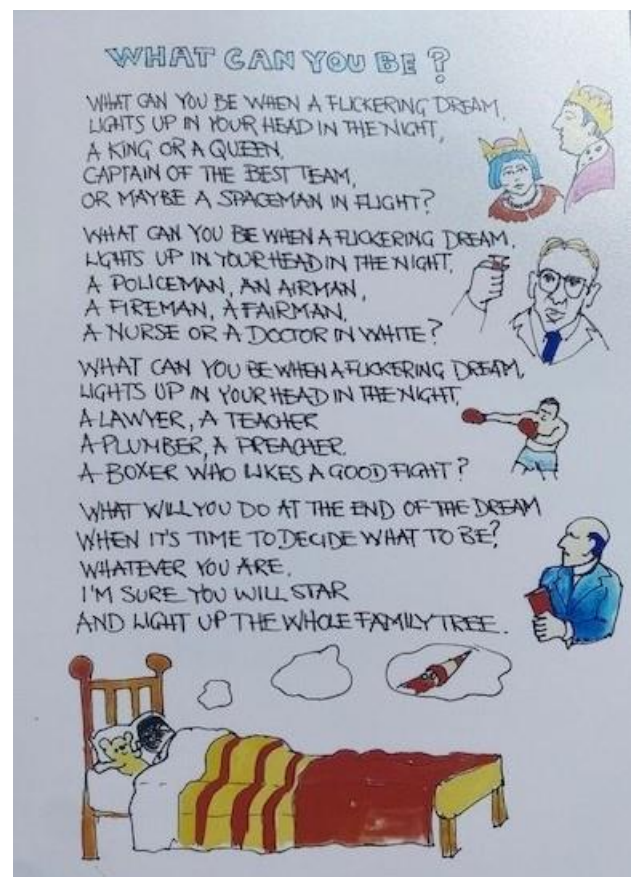 WHAT CAN YOU BE?
WHAT CAN YOU BE WHEN A FLICKERING DREAM,
LIGHTS UP IN YOUR HEAD IN THE NIGHT,
A KING OR A QUEEN,
CAPTAIN OF THE BEST TEAM,
OR MAYBE A SPACEMAN IN FLIGHT?
WHAT CAN YOU BE WHEN A FLICKERING DREAM,
LIGHTS UP IN YOUR HEAD IN THE NIGHT,
A POLICEMAN, AN AIRMAN,
A FIREMAN, A FAIRMAN,
A NURSE OR A DOCTOR IN WHITE?
WHAT CAN YOU BE WHEN A FLICKERING DREAM,
LIGHTS UP IN YOUR HEAD IN THE NIGHT,
A LAWYER, A TEACHER
A PLUMBER, A PREACHER.
A BOXER WHO LIKES A GOOD FIGHT?
WHAT WILL YOU DO AT THE END OF THE DREAM
WHEN IT'S TIME TO DECIDE WHAT TO BE?
WHATEVER YOU ARE,
I'M SURE YOU WILL STAR
AND LIGHT UP THE WHOLE FAMILY TREE.